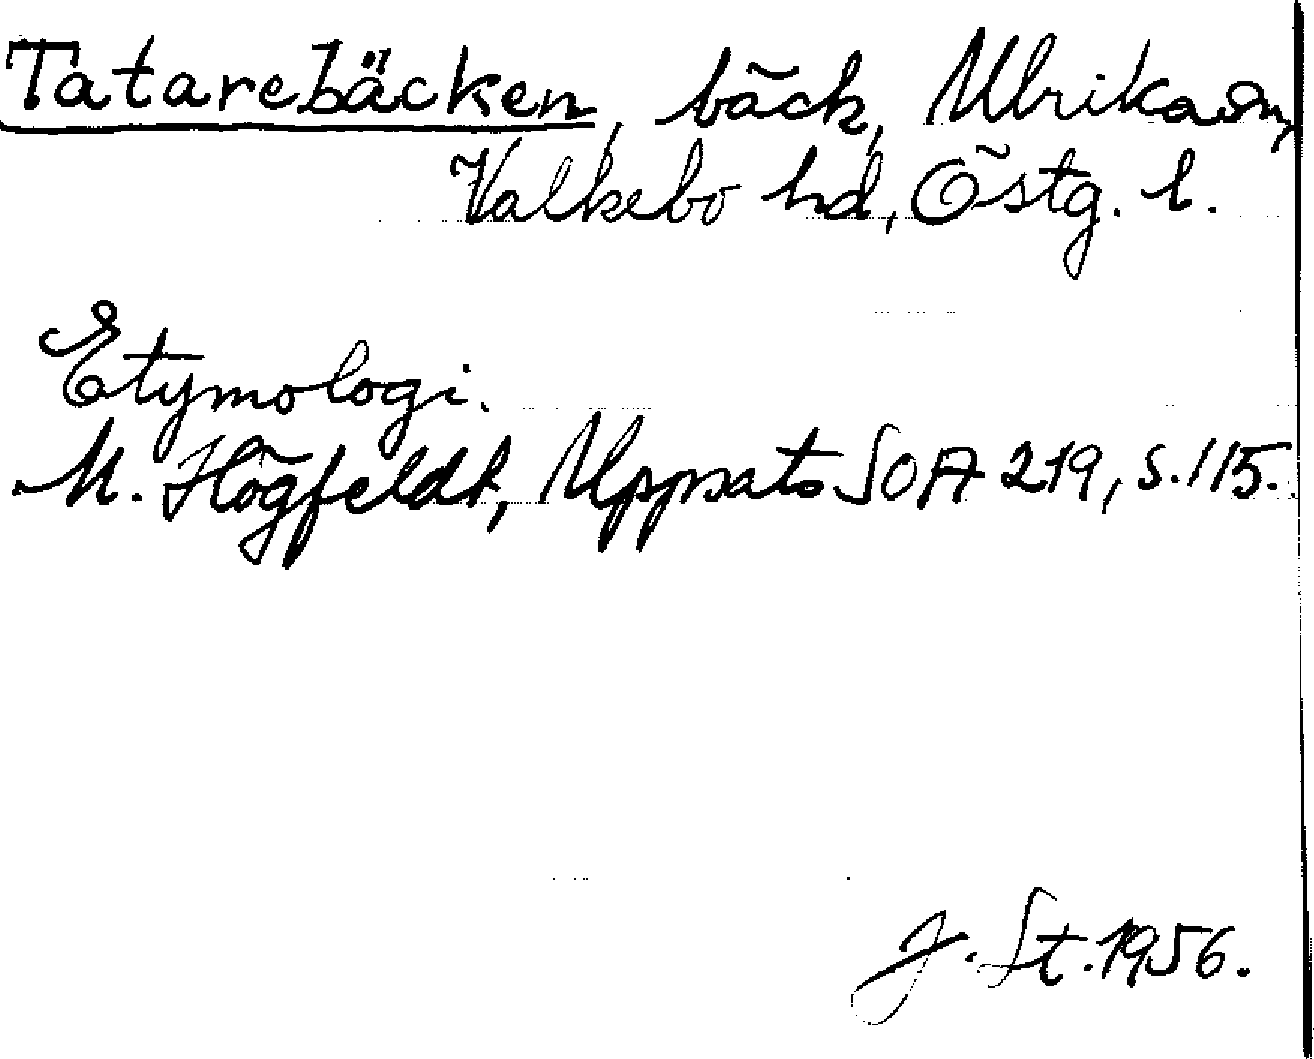 Tatarebäcken, bäck, Ulrika sn,
Valkebo hd, Östg. l.
Etymologi.
M. Högfeldt, Uppsats SOA 219, s. 115.
J. St. 1956.